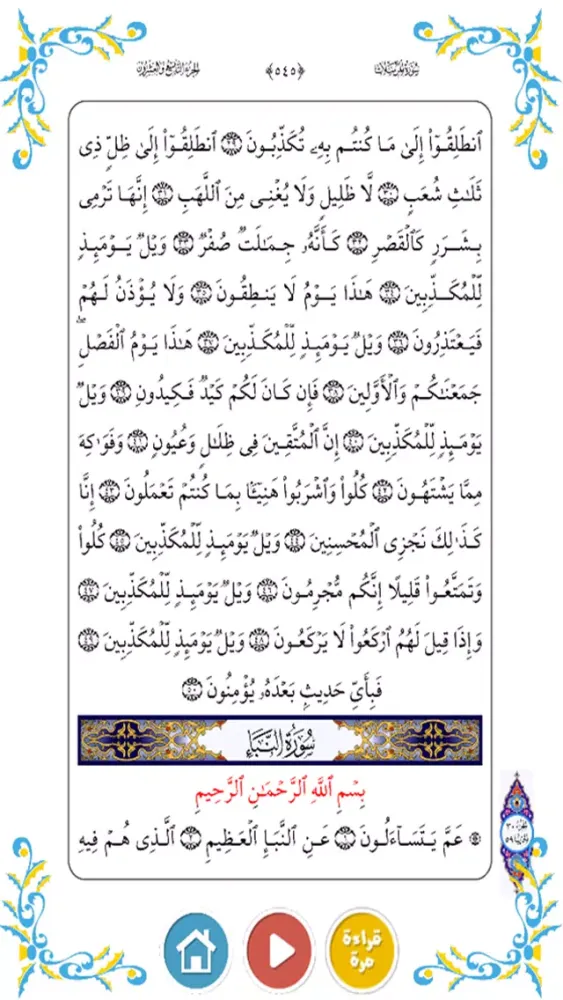 سورة المرسلات
﴿٥٤٥﴾
الجزء التاسع والعشرون
ٱنطَلِقُوٓا۟ إِلَىٰ مَا كُنتُم بِهِۦ تُكَذِّبُونَ ٢٩ ٱنطَلِقُوٓا۟ إِلَىٰ ظِلٍّ ذِى
ثَلَٰثِ شُعَبٍ ٣٠ لَّا ظَلِيلٍ وَلَا يُغْنِى مِنَ ٱللَّهَبِ ٣١ إِنَّهَا تَرْمِى
بِشَرَرٍ كَٱلْقَصْرِ ٣٢ كَأَنَّهُۥ جِمَٰلَتٌ صُفْرٌ ٣٣ وَيْلٌ يَوْمَئِذٍ
لِّلْمُكَذِّبِينَ ٣٤ هَٰذَا يَوْمُ لَا يَنطِقُونَ ٣٥ وَلَا يُؤْذَنُ لَهُمْ
فَيَعْتَذِرُونَ ٣٦ وَيْلٌ يَوْمَئِذٍ لِّلْمُكَذِّبِينَ ٣٧ هَٰذَا يَوْمُ ٱلْفَصْلِ ۖ
جَمَعْنَٰكُمْ وَٱلْأَوَّلِينَ ٣٨ فَإِن كَانَ لَكُمْ كَيْدٌ فَكِيدُونِ ٣٩ وَيْلٌ
يَوْمَئِذٍ لِّلْمُكَذِّبِينَ ٤٠ إِنَّ ٱلْمُتَّقِينَ فِى ظِلَٰلٍ وَعُيُونٍ ٤١ وَفَوَٰكِهَ
مِمَّا يَشْتَهُونَ ٤٢ كُلُوا۟ وَٱشْرَبُوا۟ هَنِيٓـًٔۢا بِمَا كُنتُمْ تَعْمَلُونَ ٤٣ إِنَّا
كَذَٰلِكَ نَجْزِى ٱلْمُحْسِنِينَ ٤٤ وَيْلٌ يَوْمَئِذٍ لِّلْمُكَذِّبِينَ ٤٥ كُلُوا۟
وَتَمَتَّعُوا۟ قَلِيلًا إِنَّكُم مُّجْرِمُونَ ٤٦ وَيْلٌ يَوْمَئِذٍ لِّلْمُكَذِّبِينَ ٤٧
وَإِذَا قِيلَ لَهُمُ ٱرْكَعُوا۟ لَا يَرْكَعُونَ ٤٨ وَيْلٌ يَوْمَئِذٍ لِّلْمُكَذِّبِينَ ٤٩
فَبِأَىِّ حَدِيثٍۭ بَعْدَهُۥ يُؤْمِنُونَ ٥٠
سُورَةُ النَّبَإِ
بِسْمِ ٱللَّهِ ٱلرَّحْمَٰنِ ٱلرَّحِيمِ
۞ عَمَّ يَتَسَآءَلُونَ ١ عَنِ ٱلنَّبَإِ ٱلْعَظِيمِ ٢ ٱلَّذِى هُمْ فِيهِ
٣٠
٥٩
قراءة
مرة